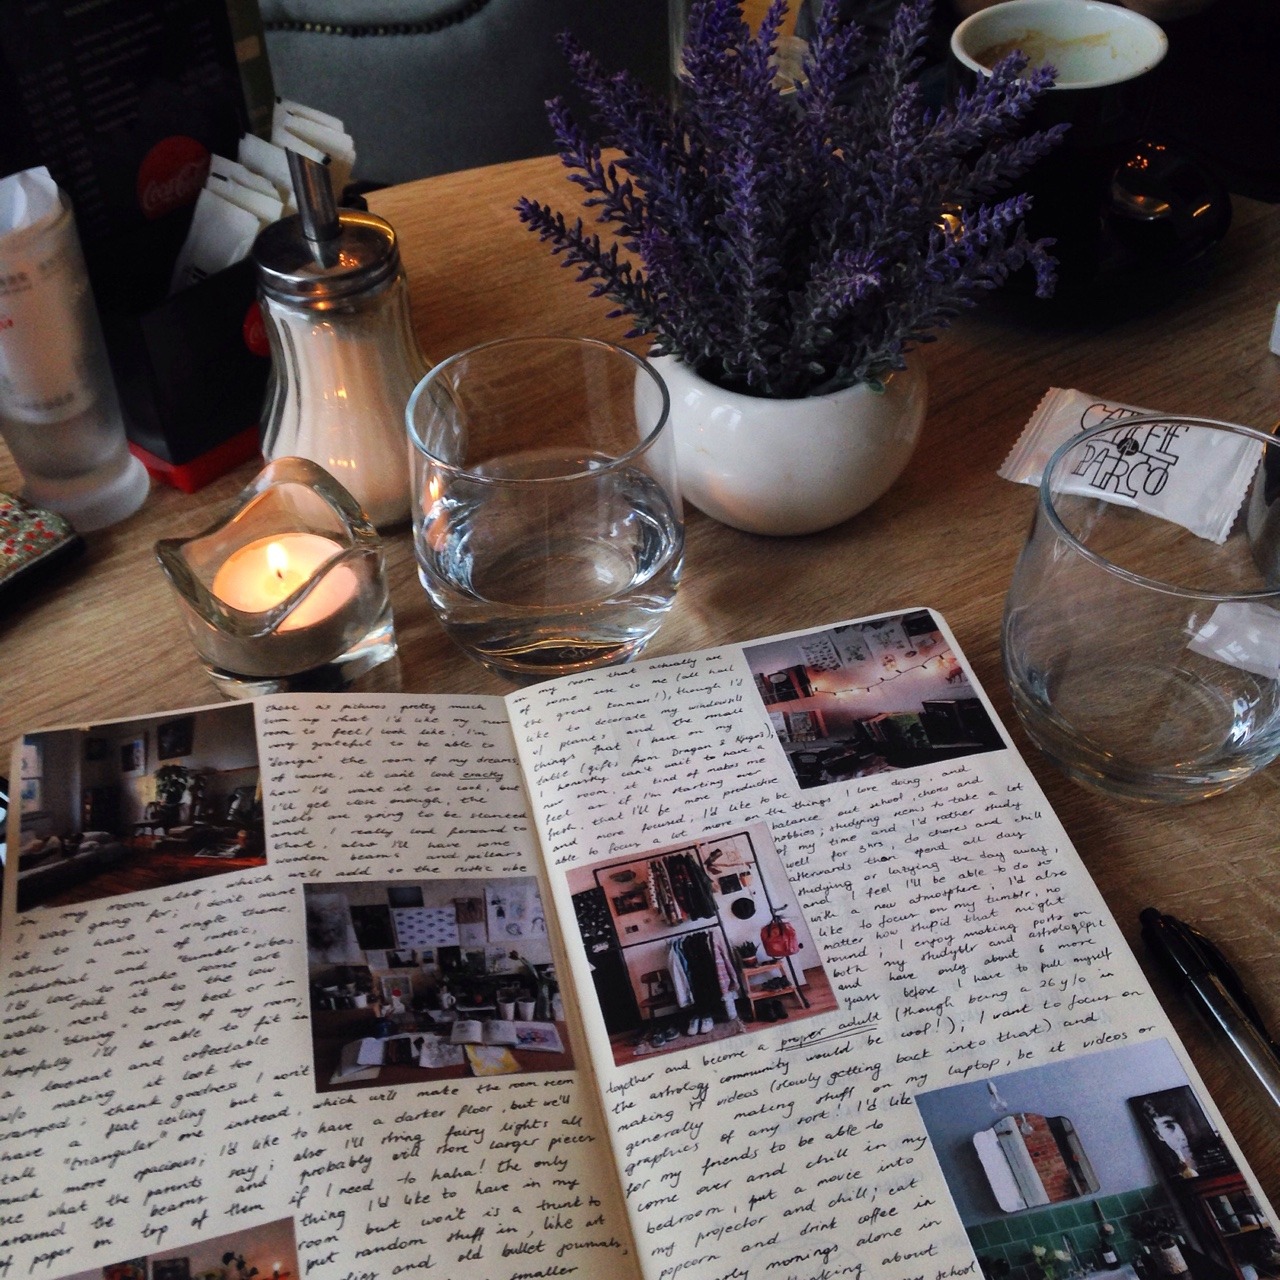 Coca-Cola
CAFFE
PARCO
these 12 pictures pretty much
sum up what I'd like my new
room to feel/look like; I'm
very grateful to be able to
"design" the room of my dreams,
of course, it can't look exactly
how I'd want it to look, but
I'll get close enough, the
walls are going to be slanted
and I really look forward to
that, also I'll have some
wooden beams and pillars
in my room also, which will add to the rustic vibe
I was going for; I don't want
it to have a single theme,
rather a mix of rustic,
industrial and "tumblr" vibes.
I'd love to make some art
and stick it to the low
walls, next to my bed or in
the "living" area of my room;
hopefully I'll be able to fit in
a loveseat and coffeetable
w/o making it look too
cramped; thank goodness I won't
have a flat ceiling but a
tall "triangular" one instead, which will make the room seem
much more spacious; I'd like to have a darter floor, but we'll
see what the parents say; also I'll string fairy lights all
around the beams and probably will store larger pieces
of paper on top of them if I need to haha! the only
thing I'd like to have in my
room but won't is a trunk to
put random stuff in, like art
and old bullet journals,
smaller
in my room that actually are
of some use to me (all hail
the great konmari!), though I'd
like to decorate my windowsill
w/ plants and the small
things that I have on my
table (gifts from Dragan &
I honestly can't wait to have a
new room, it kind of makes me
feel as if I'm starting over
fresh, that I'll be more productive
and more focused; I'd like to be
able to focus a lot more on the things I love doing, and
balance out school, chores and
hobbies; studying seems to take a lot
of my time and I'd rather study
well for 3hrs, do chores and chill
afterwards than spend all day
studying or lazying the day away,
and I feel I'll be able to do so
with a new atmosphere; I'd also
like to focus on my tumblr, no
matter how stupid that might
sound; I enjoy making posts on
both my studyblr and astrologyblr
and have only about 6 more
years before I have to pull myself
together and become a proper adult (though being a 26 y/o in
the astrology community would be cool!); I want to focus on
making yt videos (slowly getting back into that) and
generally making stuff on my laptop, be it videos or
graphics of any sort! I'd like
for my friends to be able to
come over and chill in my
bedroom, put a movie into
my projector and chill; eat
popcorn and drink coffee in
early mornings alone in
thinking about
my school